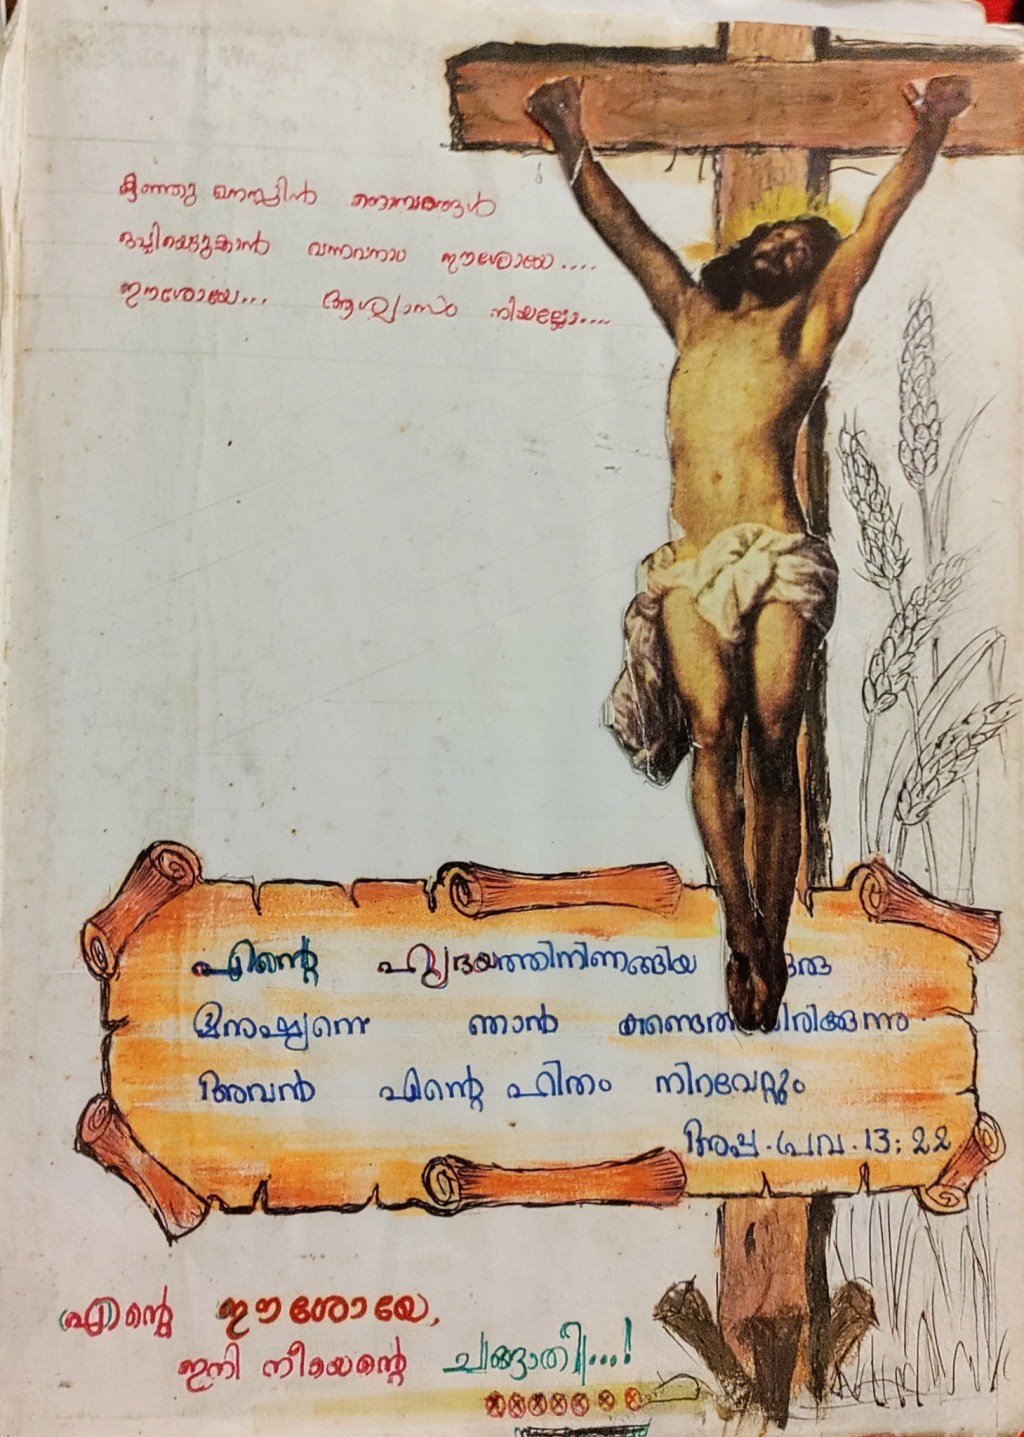 കുഞ്ഞു മനസ്സിൻ നൊമ്പരങ്ങൾ
ഒപ്പിയെടുക്കാൻ വന്നവനാം ഈശോയേ....
ഈശോയേ... ആശ്വാസം നീയല്ലോ....
എന്റെ ഹൃദയത്തിനിണങ്ങിയ ഒരു
മനുഷ്യനെ ഞാൻ കണ്ടെത്തിയിരിക്കുന്നു.
അവൻ എന്റെ ഹിതം നിറവേറ്റും
അപ്പ. പ്രവ. 13:22
എന്റെ ഈശോയേ,
ഇനി നീയെന്റെ ചങ്ങാതി...!